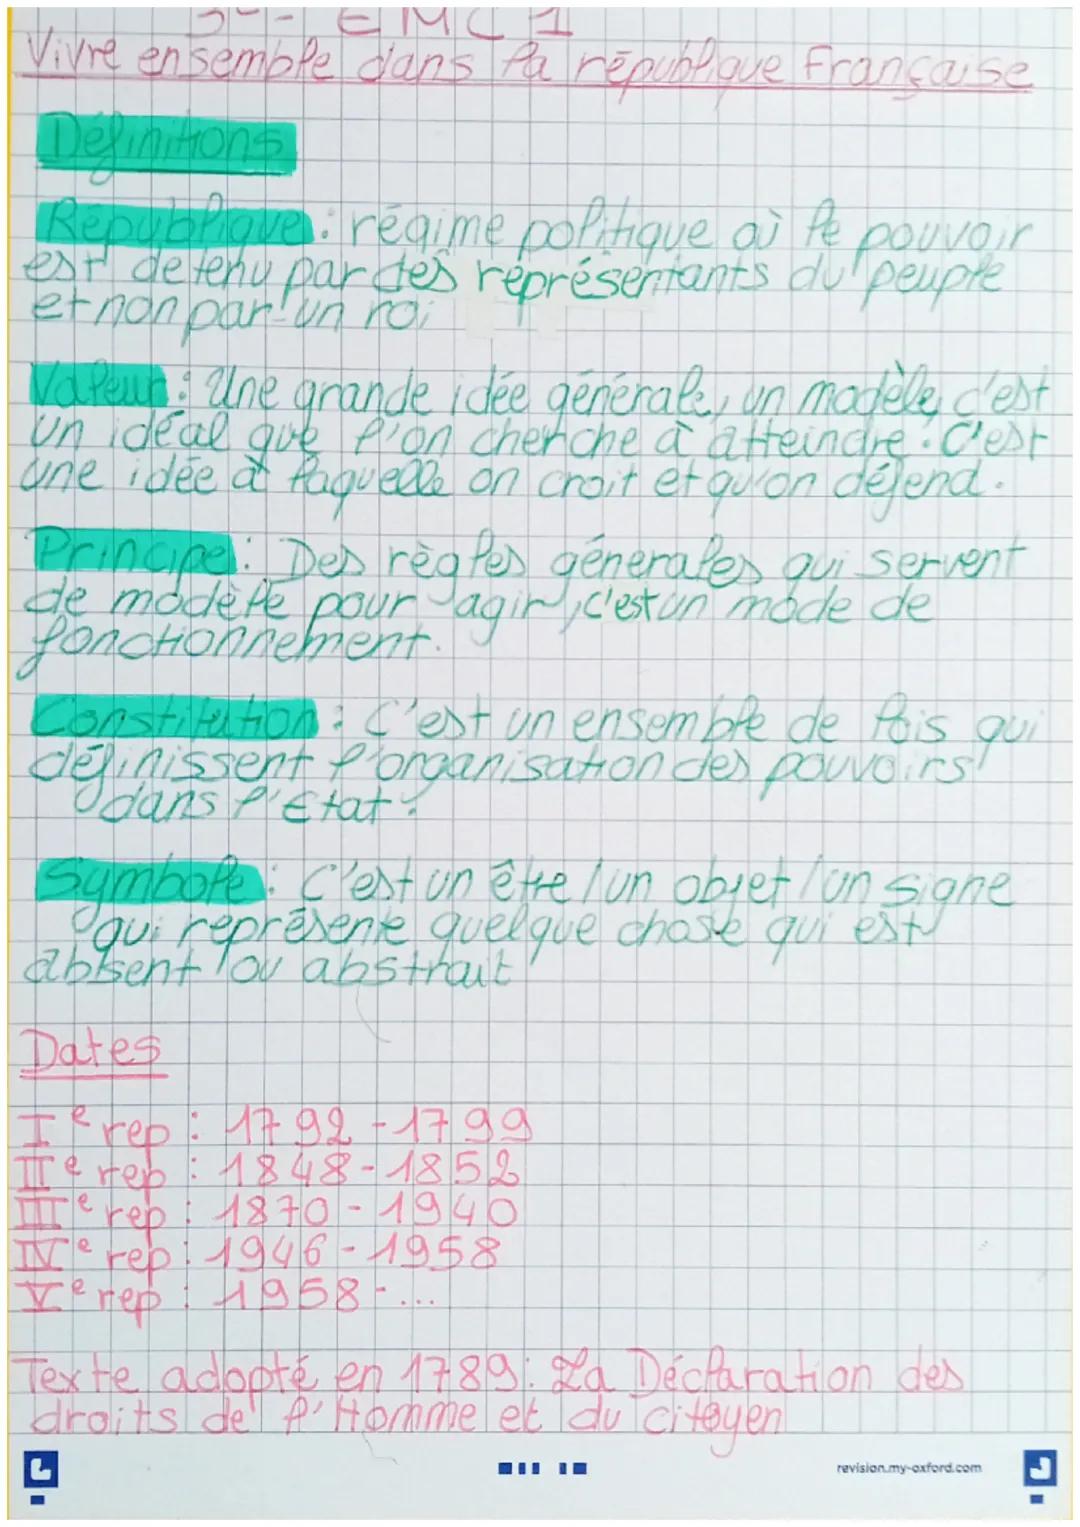 3e - EMC 1
Vivre ensemble dans la république Française
Définitions
République : régime politique où le pouvoir
est detenu par des représentants du peuple
et non par un roi
Valeur : Une grande idée générale, un modèle, c'est
un idéal que l'on cherche à atteindre. C'est
une idée à laquelle on croit et qu'on défend.
Principe : Des règles générales qui servent
de modèle pour agir, c'est un mode de
fonctionnement.
Constitution : C'est un ensemble de lois qui
définissent l'organisation des pouvoirs
dans l'Etat.
Symbole : C'est un être / un objet / un signe
qui représente quelque chose qui est
absent / ou abstrait
Dates
Ie rep : 1792 - 1799
IIe rep : 1848 - 1852
IIIe rep : 1870 - 1940
IVe rep : 1946 - 1958
Ve rep : 1958 - ...
Texte adopté en 1789 : La Déclaration des
droits de l'Homme et du citoyen
revision.my-oxford.com